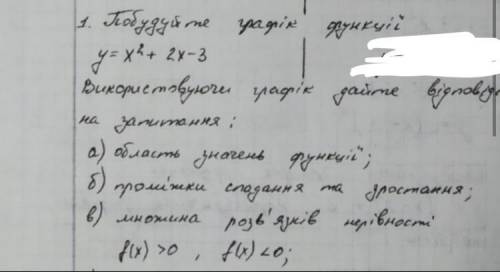 1. Побудуйте графік функції
y = x² + 2x - 3
Використовуючи графік дайте відповіді
на запитання:
а) область значень функції;
б) проміжки спадання та зростання;
в) множина розв'язків нерівності
f(x) > 0 , f(x) < 0;